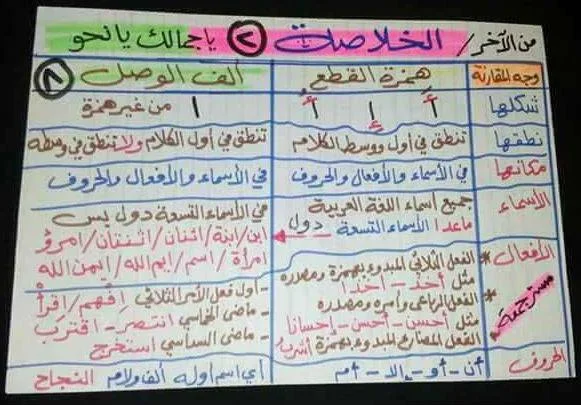 من الآخر / الخلاصة ٢ يا جمالك يا نحو
وجه المقارنة همزة القطع ألف الوصل ٨
شكلها أَ إِ أُ ا من غير همزة
نطقها تنطق في أول ووسط الكلام تنطق في أول الكلام ولا تنطق في وسطه
مكانها في الأسماء والأفعال والحروف في الأسماء والأفعال والحروف
الأسماء جميع أسماء اللغة العربية في الأسماء التسعة دول بس
ماعدا الأسماء التسعة دول ابن/ابنة/اثنان/اثنتان/امرؤ
امرأة/اسم/ايم الله/ايمن الله
الأفعال * الفعل الثلاثي المبدوء بهمزة ومصدره - أول فعل الأمر الثلاثي افهم/اقرأ
مثل أخذ - أخذا - ماضي الخماسي انتصر - اقترب
* الفعل الرباعي وأمره ومصدره - ماضي السداسي استخرج
مثل أحسن - أحسن - إحسانا
الفعل المضارع المبدوء بهمزة أشرب
مسترجمة
الحروف أن - أو - إلا - أم أي اسم أوله ألف ولام النجاح